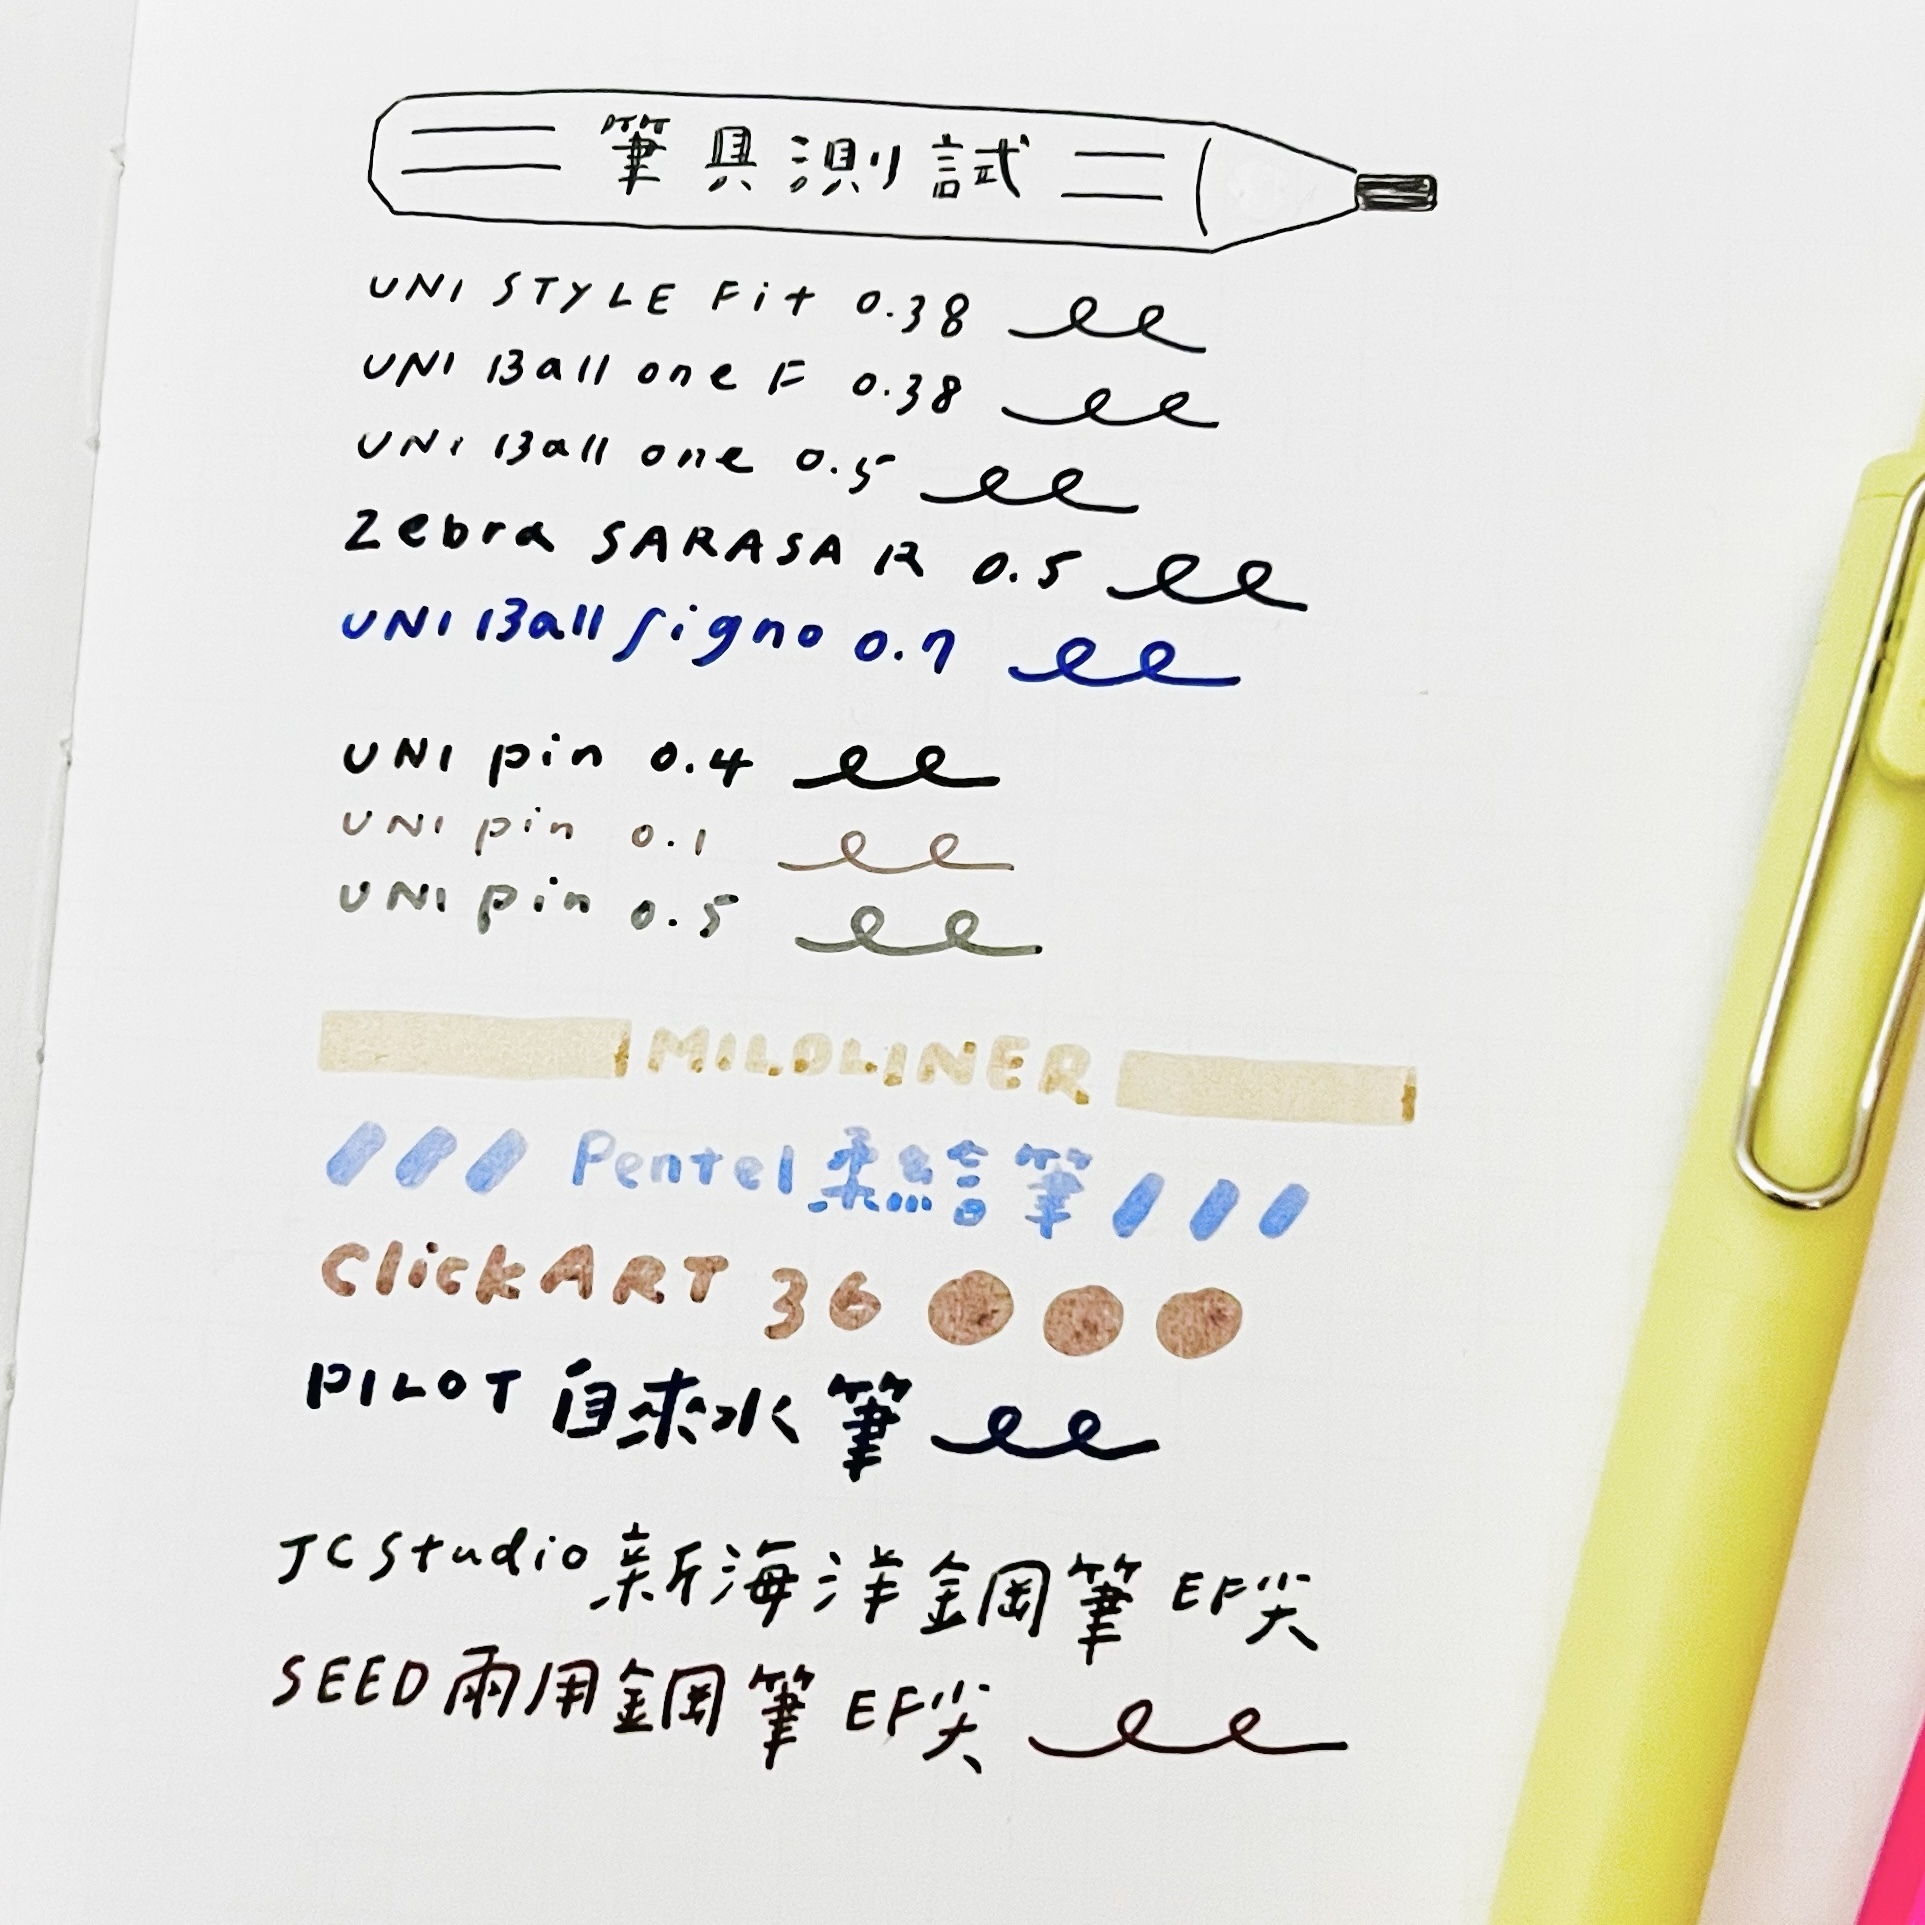 筆具測試
UNI STYLE Fit 0.38
UNI Ball one F 0.38
UNI Ball one 0.5
Zebra SARASA R 0.5
UNI Ball Signo 0.7
UNI pin 0.4
UNI pin 0.1
UNI pin 0.5
MILDLINER
Pentel柔繪筆
ClickART 36
PILOT 自來水筆
JC Studio新海洋鋼筆 EF尖
SEED兩用鋼筆 EF尖